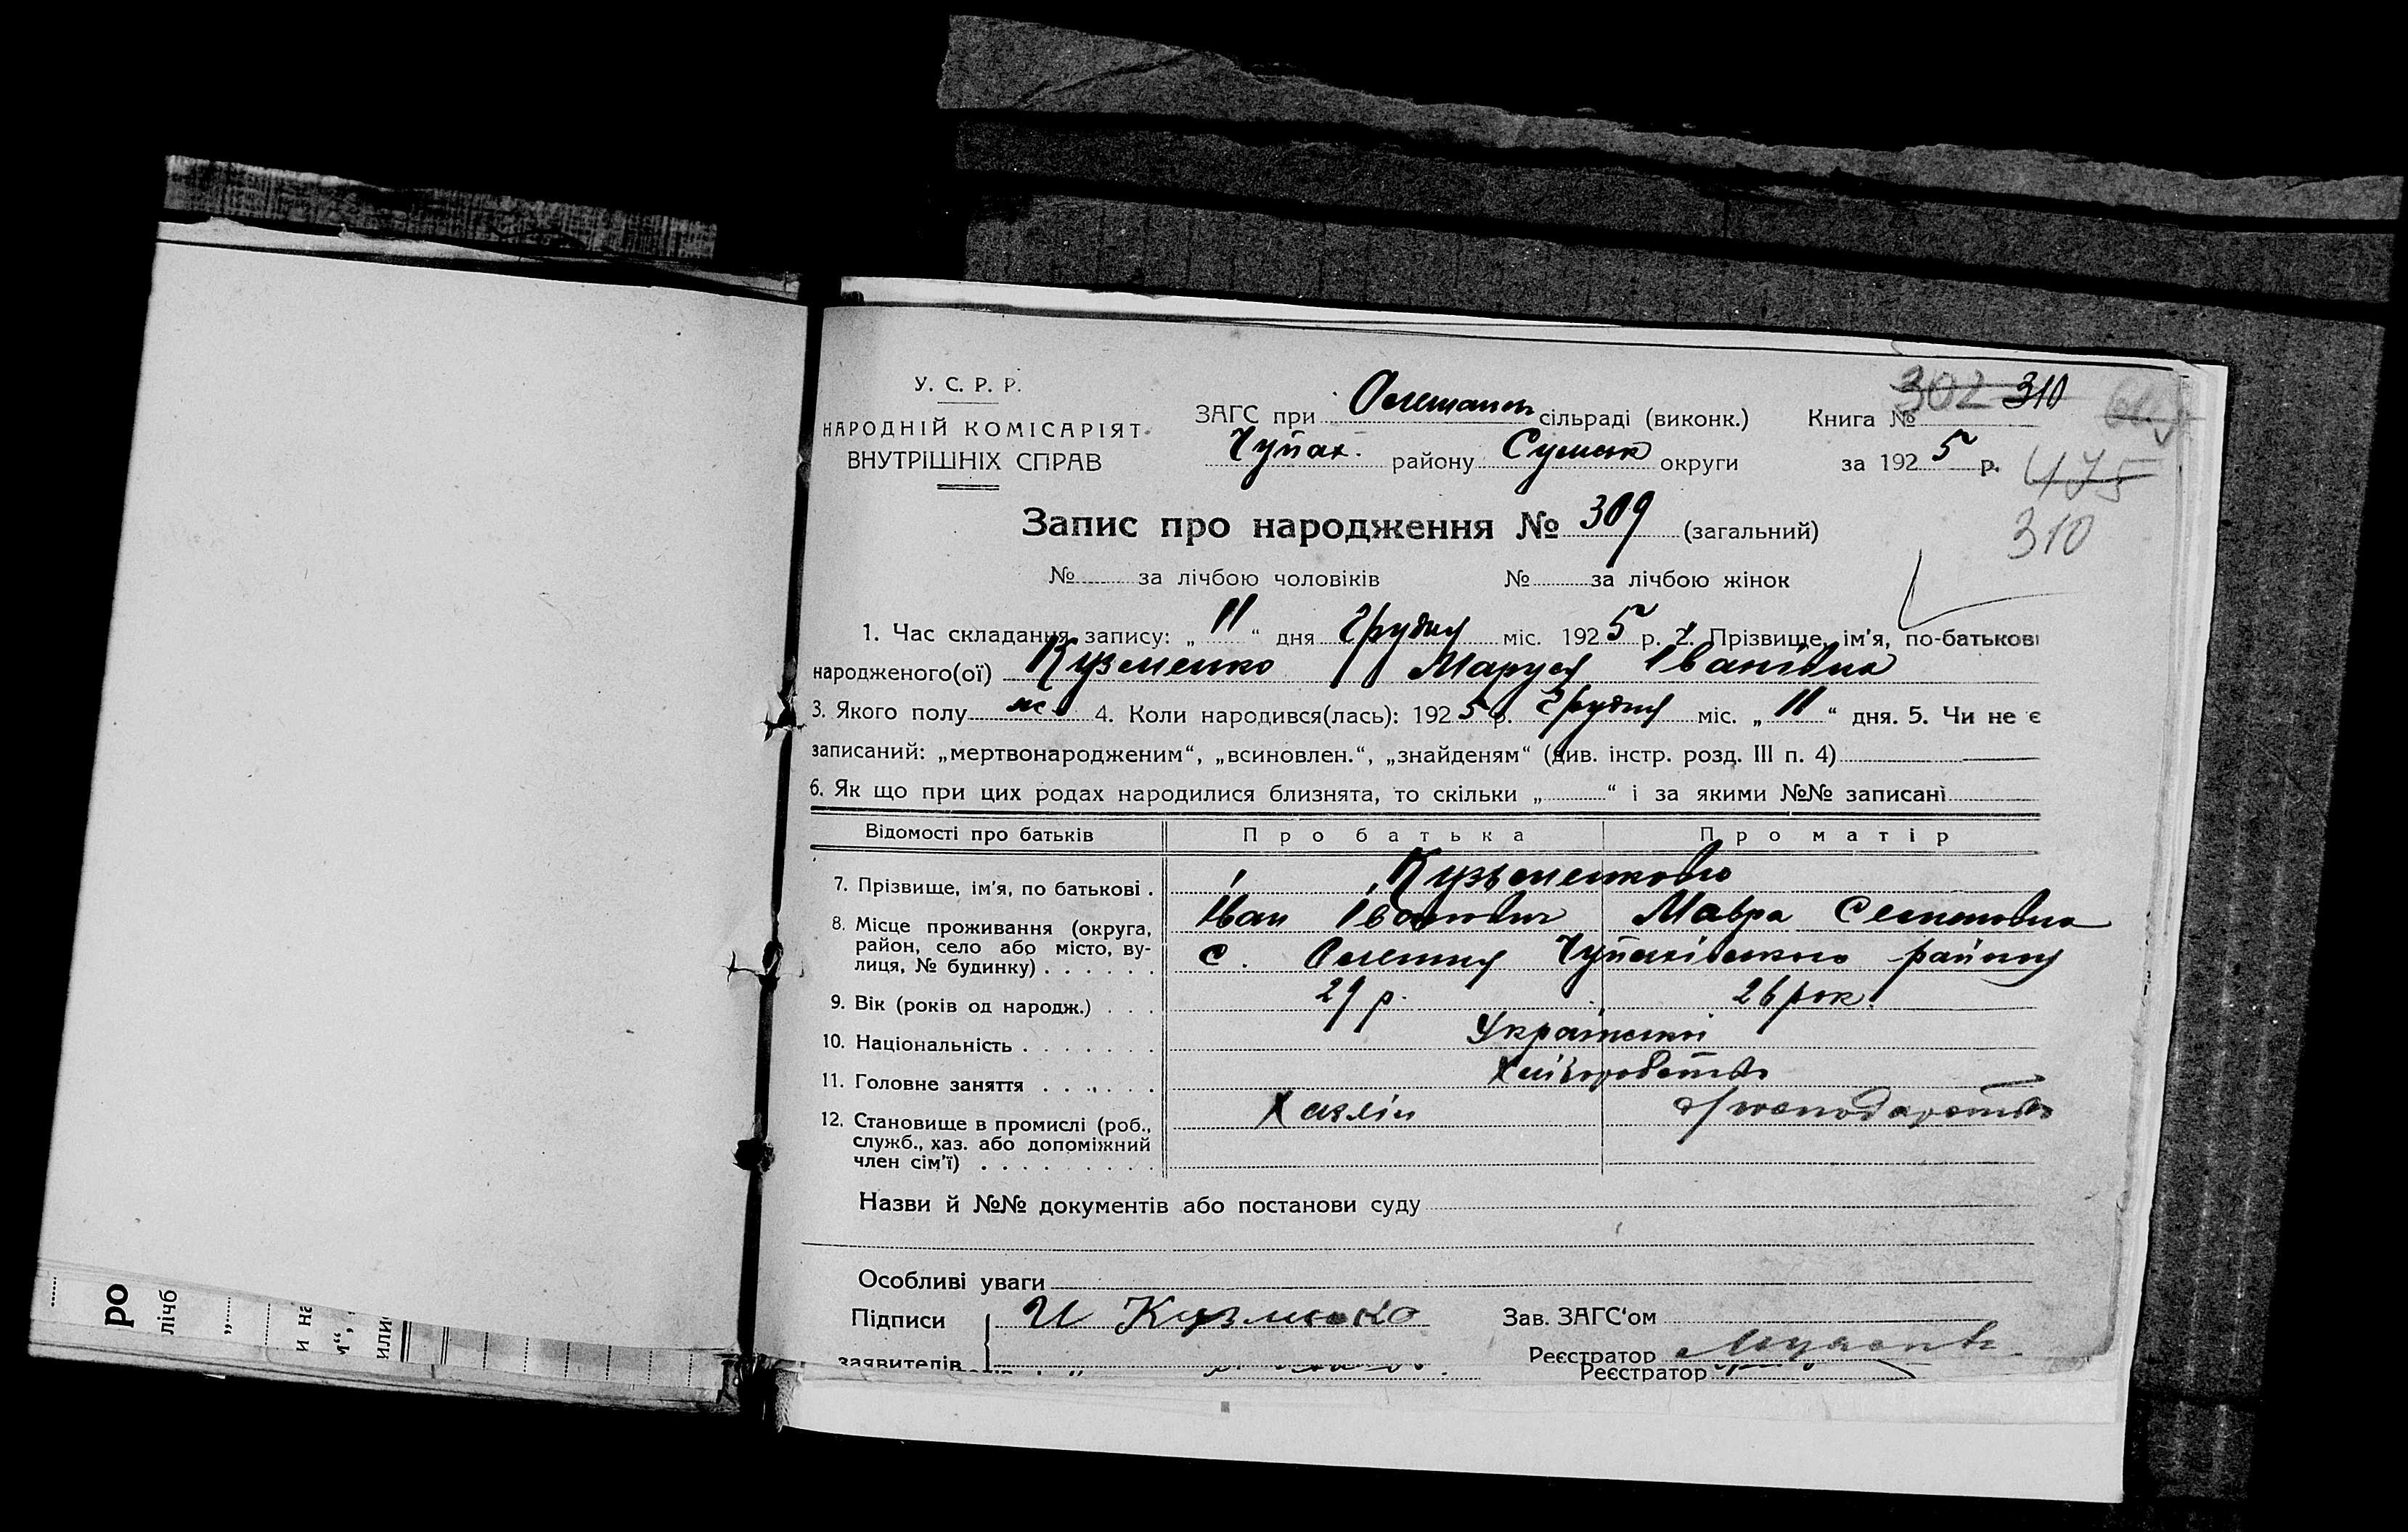 У. С. Р. Р.
НАРОДНІЙ КОМІСАРІЯТ
ВНУТРІШНІХ СПРАВ
ЗАГС при Олешанск сільраді (виконк.)
Чупах. району Сумськ округи
Книга № 302 310
за 1925 р.
475
310
Запис про народження № 309 (загальний)
№ за лічбою чоловіків № за лічбою жінок
1. Час складання запису: „ 11 “ дня Грудня міс. 1925 р. 2. Прізвище, ім'я, по-батькові
народженого(ої) Кузменко Маруся Іванівна
3. Якого полу ж. 4. Коли народився(лась): 1925 р. Грудня міс. „ 11 “ дня. 5. Чи не є
записаний: „мертвонародженим“, „всиновлен.“, „знайденям“ (див. інстр. розд. III п. 4)
6. Як що при цих родах народилися близнята, то скільки „ “ і за якими №№ записані
Відомості про батьків Про батька Про матір
7. Прізвище, ім'я, по батькові . Кузьменкови
Іван Іванович Мавра Семеновна
8. Місце проживання (округа,
район, село або місто, ву-
лиця, № будинку) . . . . . .
с. Олешня Чупахівського району
9. Вік (років од народж.) . . . 29 р. 26 рок.
10. Національність . . . . . . . Української
11. Головне заняття . . . . . . Хліборобство
12. Становище в промислі (роб.,
служб., хаз. або допоміжний
член сім'ї) . . . . . . . . .
Хазяїн
Назви й №№ документів або постанови суду
Особливі уваги
Підписи
заявителів
И Кузменко
Зав. ЗАГС'ом
Реєстратор
Реєстратор
ро
лічб
и на
м“,
или